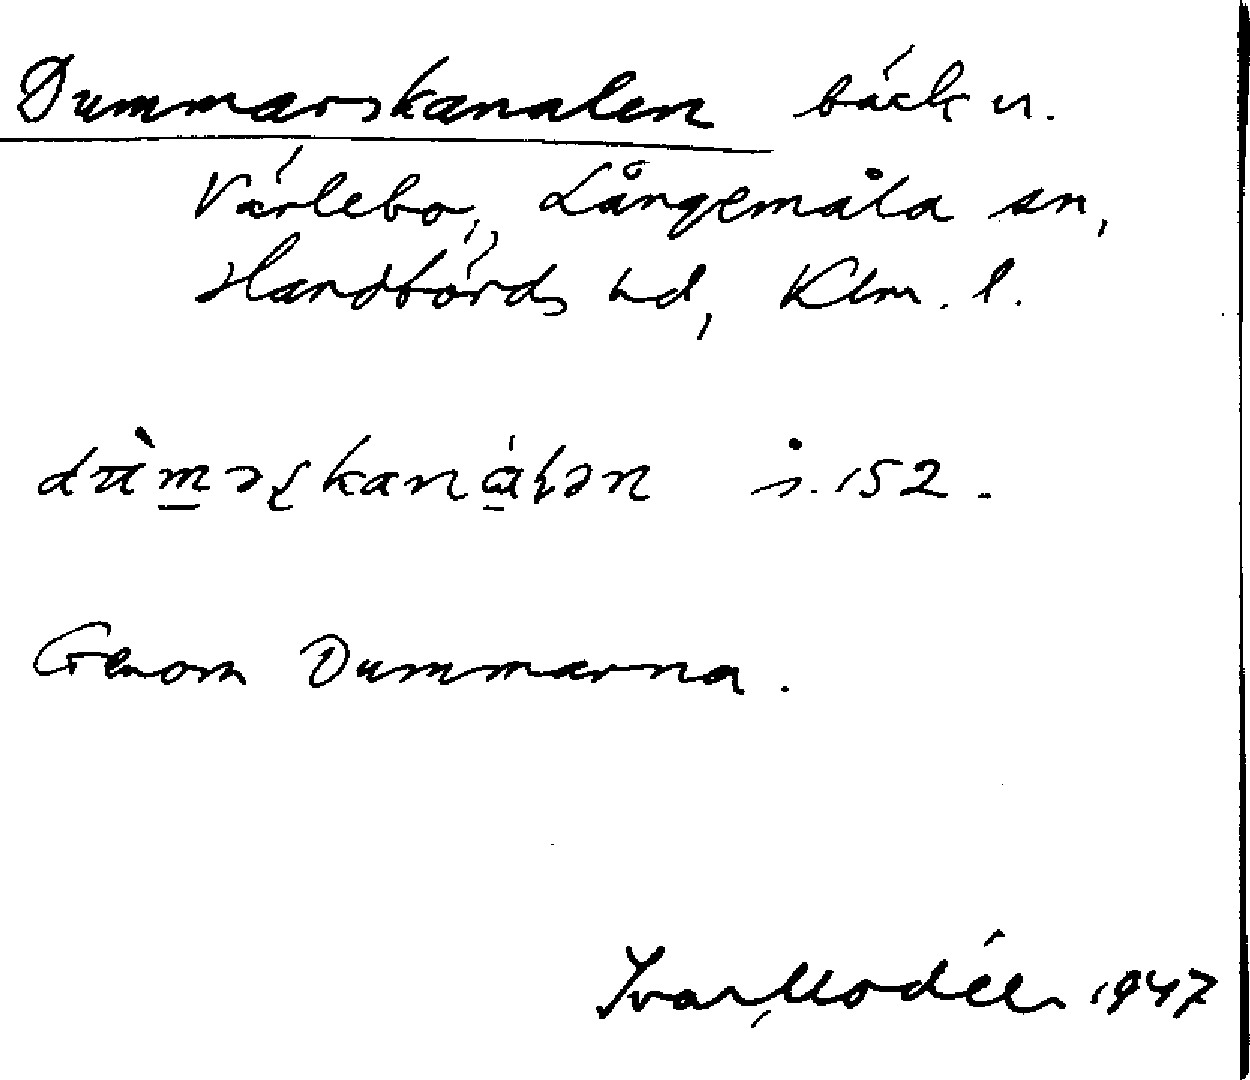 Dummarskanalen bäck n.
Värlebo, Långemåla sn,
Handbörds hd, Klm. l.
i. 152.
Genom Dummarna.
Ivar Modéer 1947